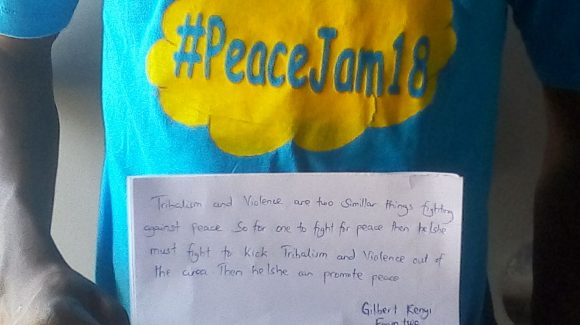 #PeaceJam18
Tribalism and Violence are two Similar things fighting
against peace. So for one to fight for peace then he/she
must fight to Kick Tribalism and Violence out of
the area. Then he/she can promote peace
Gilbert Kenyi
Form two